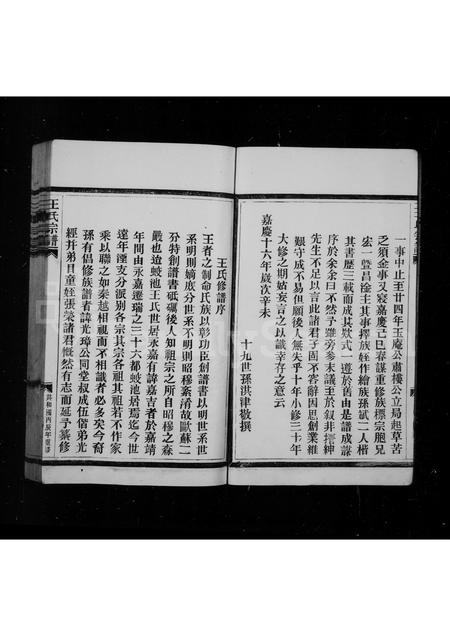 一事中止至廿四年玉庵公肅摟公立局起草苦
乏須金事又寢嘉慶己巳春謀重修族標宗胞兄
宏一暨昌淦主其事擇族姪作繪族孫斌二人楷
其書歷三載而成其欵式一遵於舊由是譜成諉
序於余余曰不然予雖旁參末議至於叙非搢紳
先生不足以言此諸君子固不容辭因思創業維
艱守成不易但願後人無失乎十年小修三十年
大修之期姑妄言之以識幸存之意云
嘉慶十六年歲次辛未
十九世孫洪津敬撰
王氏修譜序
王者之制命氏族以彰功臣創譜書以明世系世
系明則嫡庶分世系不明則昭穆紊淆故歐蘇二
公特創譜書砥礪後人知祖宗之所自昭穆之森
嚴也迨蛟池王氏世居永嘉有諱嘉吉者於嘉靖
年間由永嘉遷瑞之三十六都蛟池居焉迄今世
遠年湮支分派别各宗其宗各祖其祖若不作家
乘以聯之如秦越相視而不相識者必多矣今裔
孫有倡修族譜者諱光璋公同堂叔成伍偕弟光
經并弟目童姪張榮諸君慨然有志而延予纂修
王氏宗譜
共和國丙辰年重修